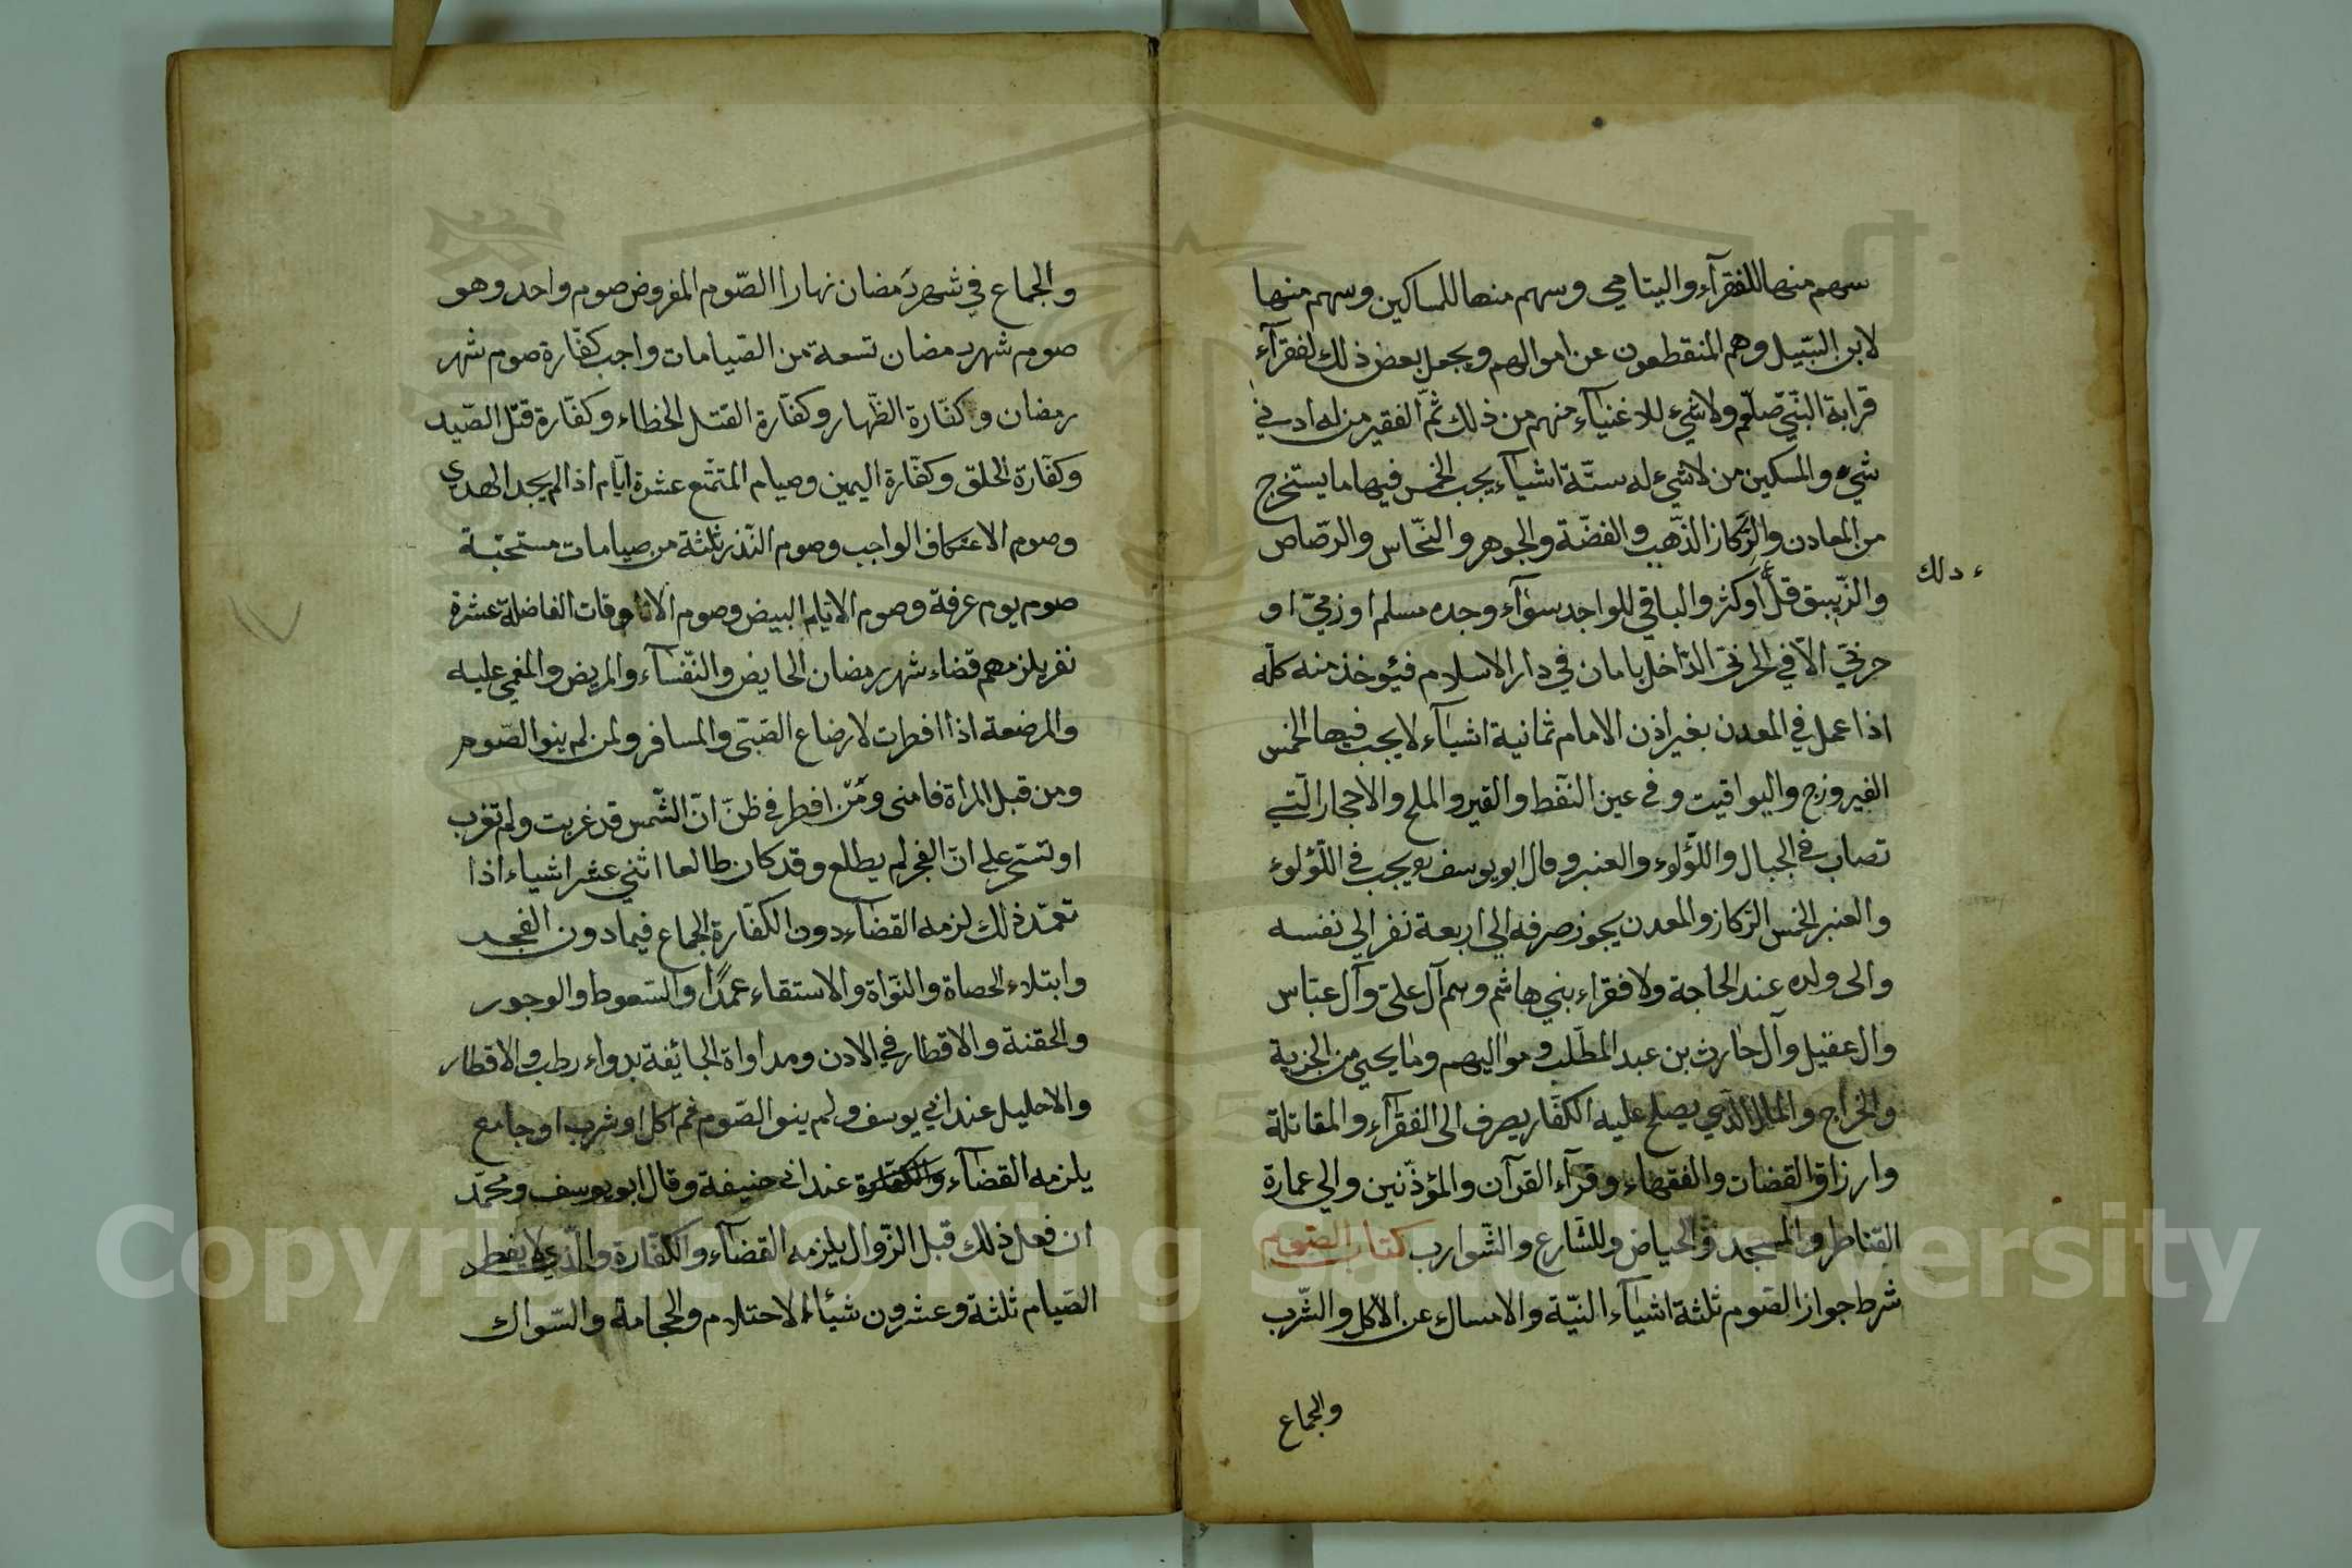 سهم منها للفقرآء واليتامي وسهم منها للمساكين وسهم منها
لابن السّبيل وهم المنقطعون عن اموالهم ويجعل بعض ذلك لفقرآء
قرابة النّبيّ صلّعم ولا شيء للاغنيآء منهم من ذلك ثمّ الفقير من له ادني
شيء والمسكين من لا شيء له ستّة اشيآء يجب الخمس فيها ما يستخرج
من المعادن والرّكاز الذّهب والفضّة والجوهر والنّحاس والرّصاص
والزّيبق قلّ او كثر والباقي للواجد سوآء وجده مسلم او زمّيّ او
ذلك
حربّي الاّ في الحربّي الدّاخل بامان في دار الاسلام فيئوخذ منه كلّه
اذا عمل في المعدن بغير اذن الامام ثمانية اشيآء لا يجب فيها الخمس
الفيروزج واليواقيت وفي عين النّفط والقير والملح والاحجار الّتي
تصاب في الجبال واللّؤلوء والعنبر وقال ابو يوسف يجب في اللّؤلوء
والعنبر الخمس الرّكاز والمعدن يجوز صرفه الي اربعة نفر الي نفسه
والى ولده عند الحاجة ولا فقراء بني هاشم وهم آل عليّ وآل عبّاس
وال عقيل وآل حارث بن عبد المطّلب ومواليهم وما يحيي من الجزية
والخراج والمال الّذي يصلح عليه الكفّار يصرف الى الفقرآء والمقاتلة
وارزاق القضات والفقهاء وقرّآء القرآن والمؤذّنين والي عمارة
القناطر والمسجد والحياض وللشّارع والشّوارب كتاب الصّوم
شرط جواز الصّوم ثلثة اشيآء النيّة والامساك عن الاكل والشّرب
والجماع
والجماع في شهر رمضان نهارا الصّوم المفروض صوم واحد وهو
صوم شهر رمضان تسعة من الصّيامات واجب كفّارة صوم شهر
رمضان وكفّارة الظّهار وكفّارة القتل الخطاء وكفّارة قتل الصّيد
وكفّارة الحلق وكفّارة اليمين وصيام المتمّتع عشرة ايّام اذا لم يجد الهدي
وصوم الاعتكاف الواجب وصوم النّذر ثلثة من صيامات مستحبّة
صوم يوم عرفة وصوم الايّام البيض وصوم الاوقات الفاضلة عشرة
نفر يلزمهم قضاء شهر رمضان الحايض والنّفسآء والمريض والمغمي عليه
والمرضعة اذا افطرت لارضاع الصّبّي والمسافر ولمن لم ينو الصّوم
ومن قبل المراة فامنى ومّن افطر في ظنّ انّ الشّمس قد غربت ولم تغرب
او تسّحر علي انّ الفجر لم يطلع وقد كان طالعا اثني عشر اشياء اذا
تعمّد ذلك لزمه القضآء دون الكفّارة الجماع فيما دون الفجد
وابتلاء الحصاة والنّواة والاستقاء عمدًا والسّعوط والوجور
والحقنة والاقطار في الاذن ومداواة الجائفة بدواء رطب والاقطار
والاحليل عند ابي يوسف ولم ينو الصّوم ثم اكل او شرب او جامع
يلزمه القضآء والكفّارة عند ابي حنيفة وقال ابو يوسف ومحمّد
ان فعل ذلك قبل الزّوال يلزمه القضآء والكفّارة والّذي لا يفطر
الصّيام ثلثة وعشرون شيئا الاحتلام والحجامة والسّواك
Copyright © King Saud University